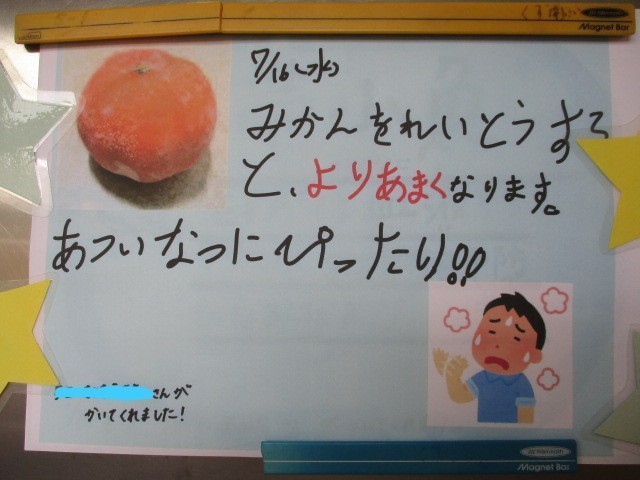 Magnet Bar
7/16(水)
みかんをれいとうする
と、よりあまくなります。
あついなつにぴったり!!
さんが
かいてくれました!
Magnet Bar